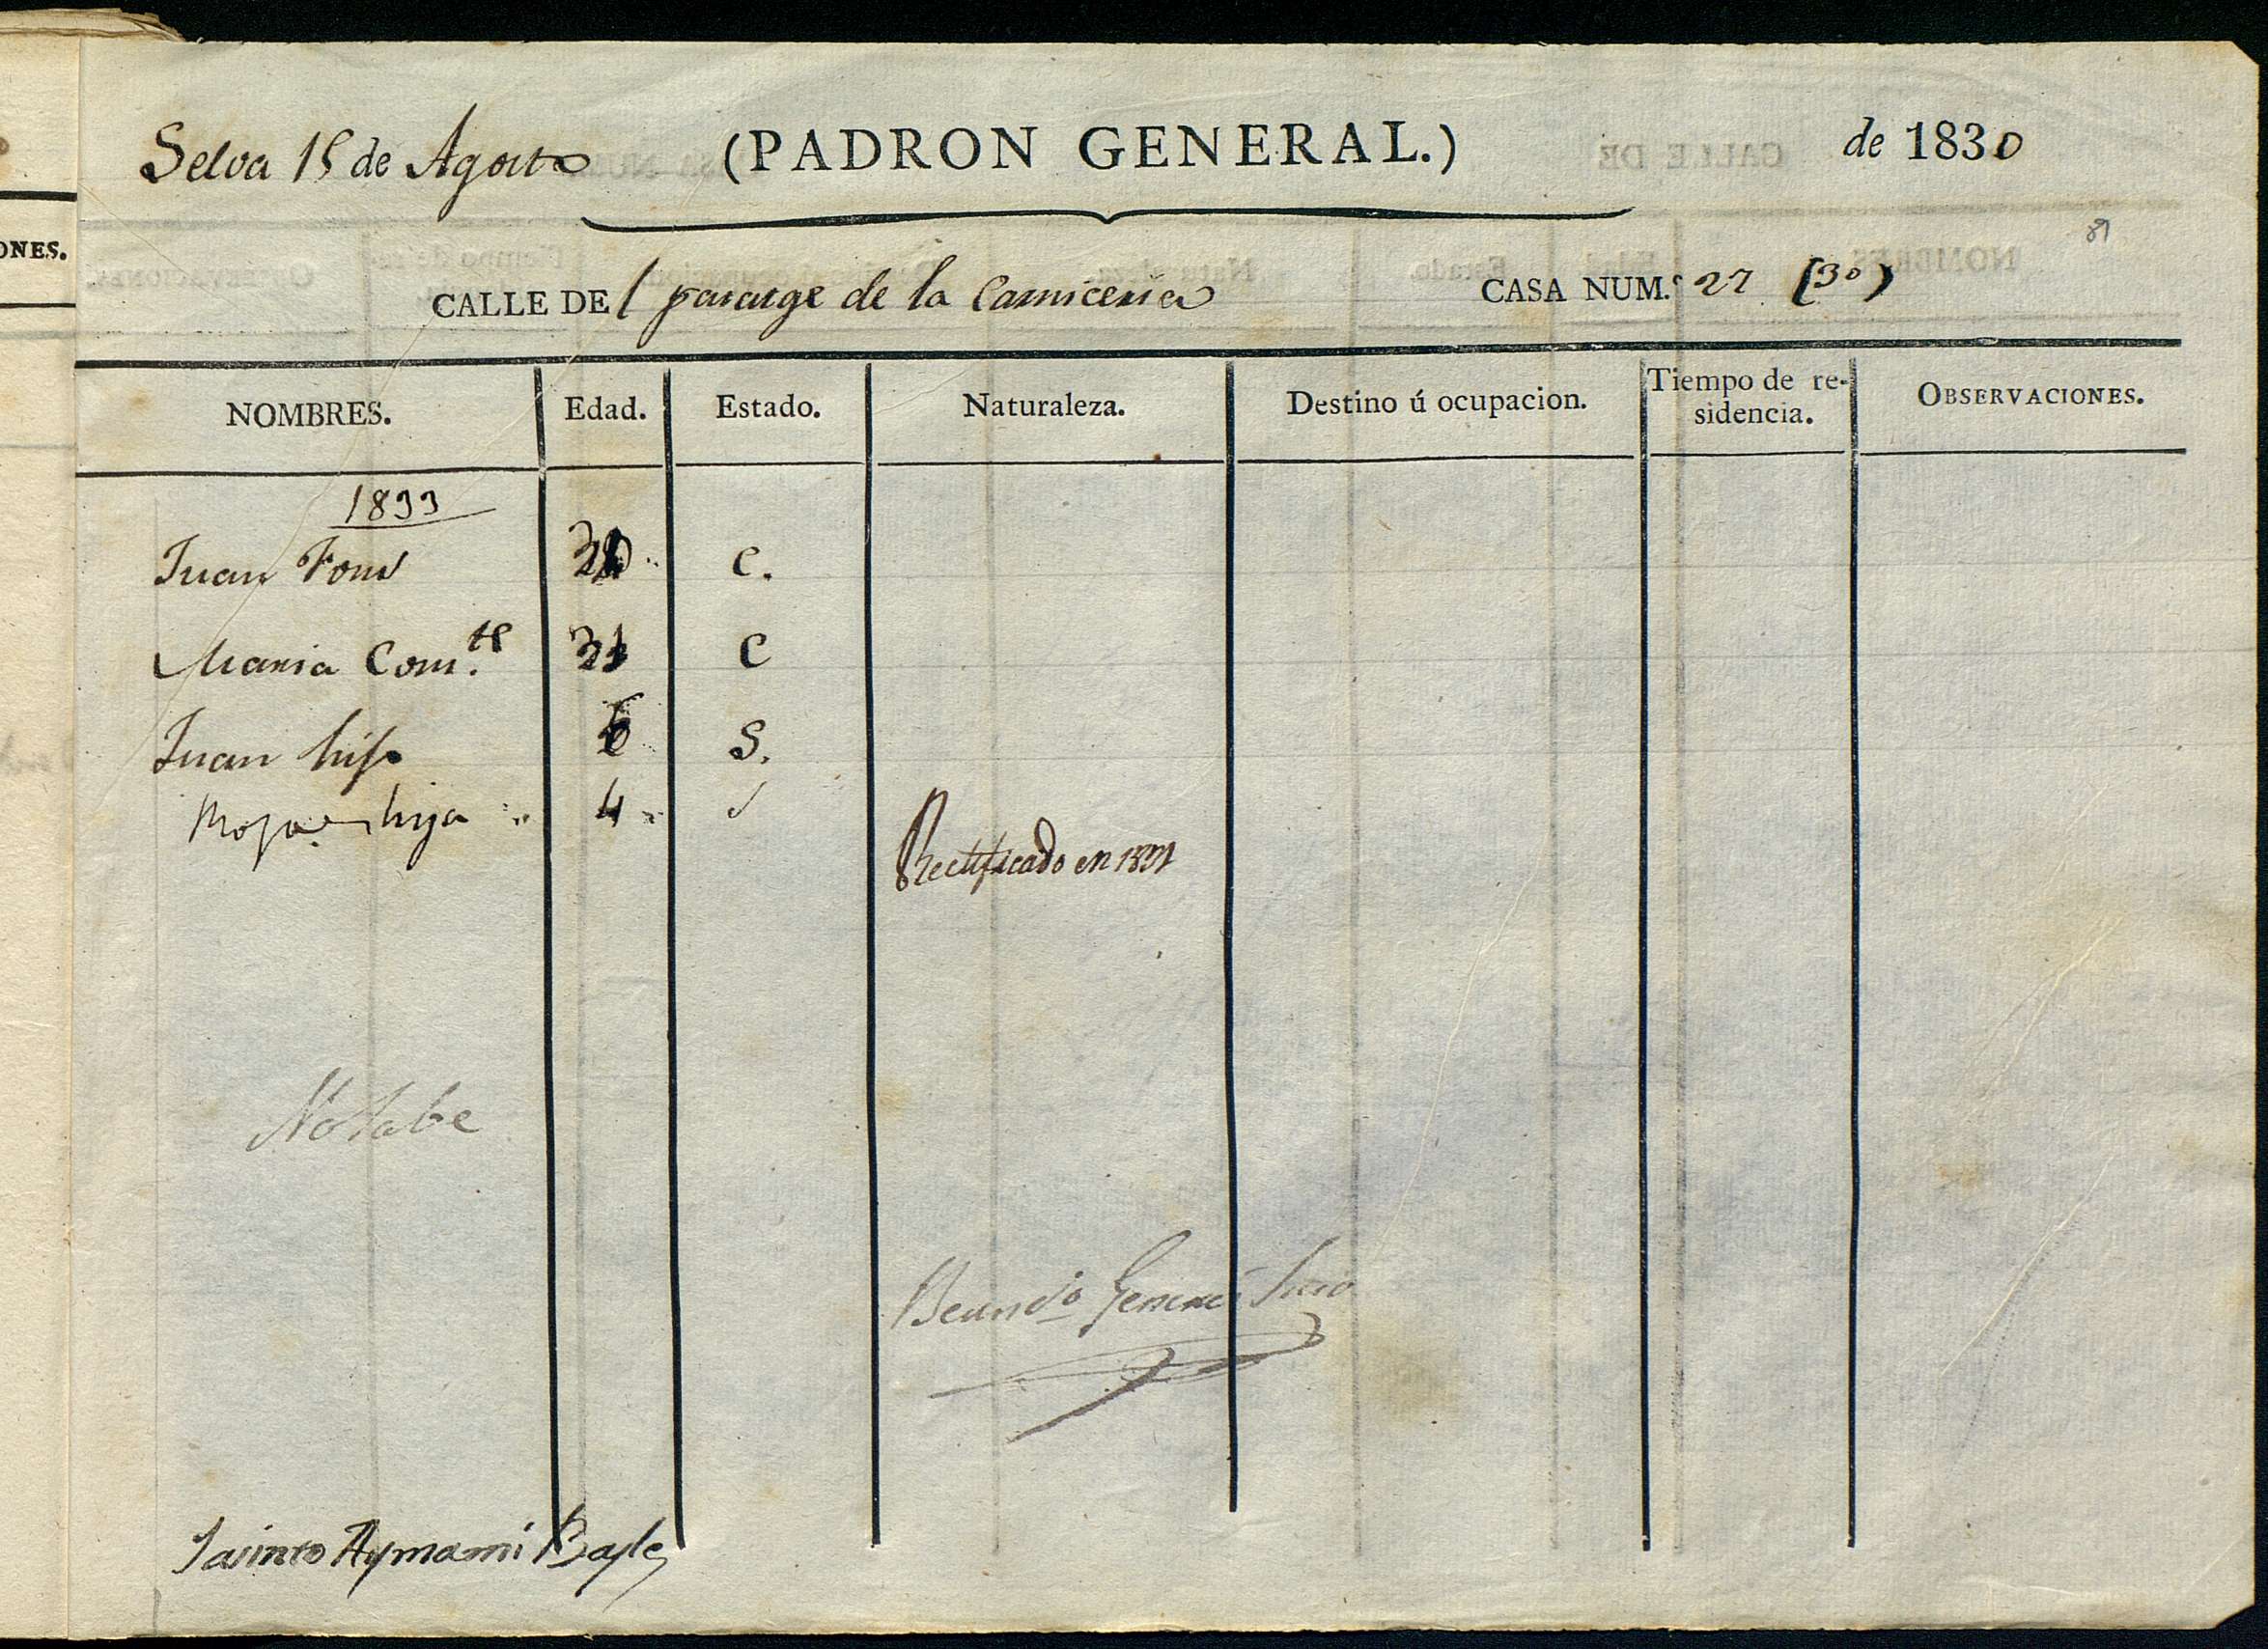 Selva 15 de Agosto (PADRON GENERAL.) de 1830
89
CALLE DEl parage de la Carniceria CASA NUM.º 27 (3º)
ONES.
NOMBRES. Edad. Estado. Naturaleza. Destino ú ocupacion. Tiempo de re-
sidencia. OBSERVACIONES.
1833
Juan Fons c.
Maria Cons.te c
Juan hijo S.
hija 4
Rectificado en 1831
No sabe
Jasinto Aymami Bayle